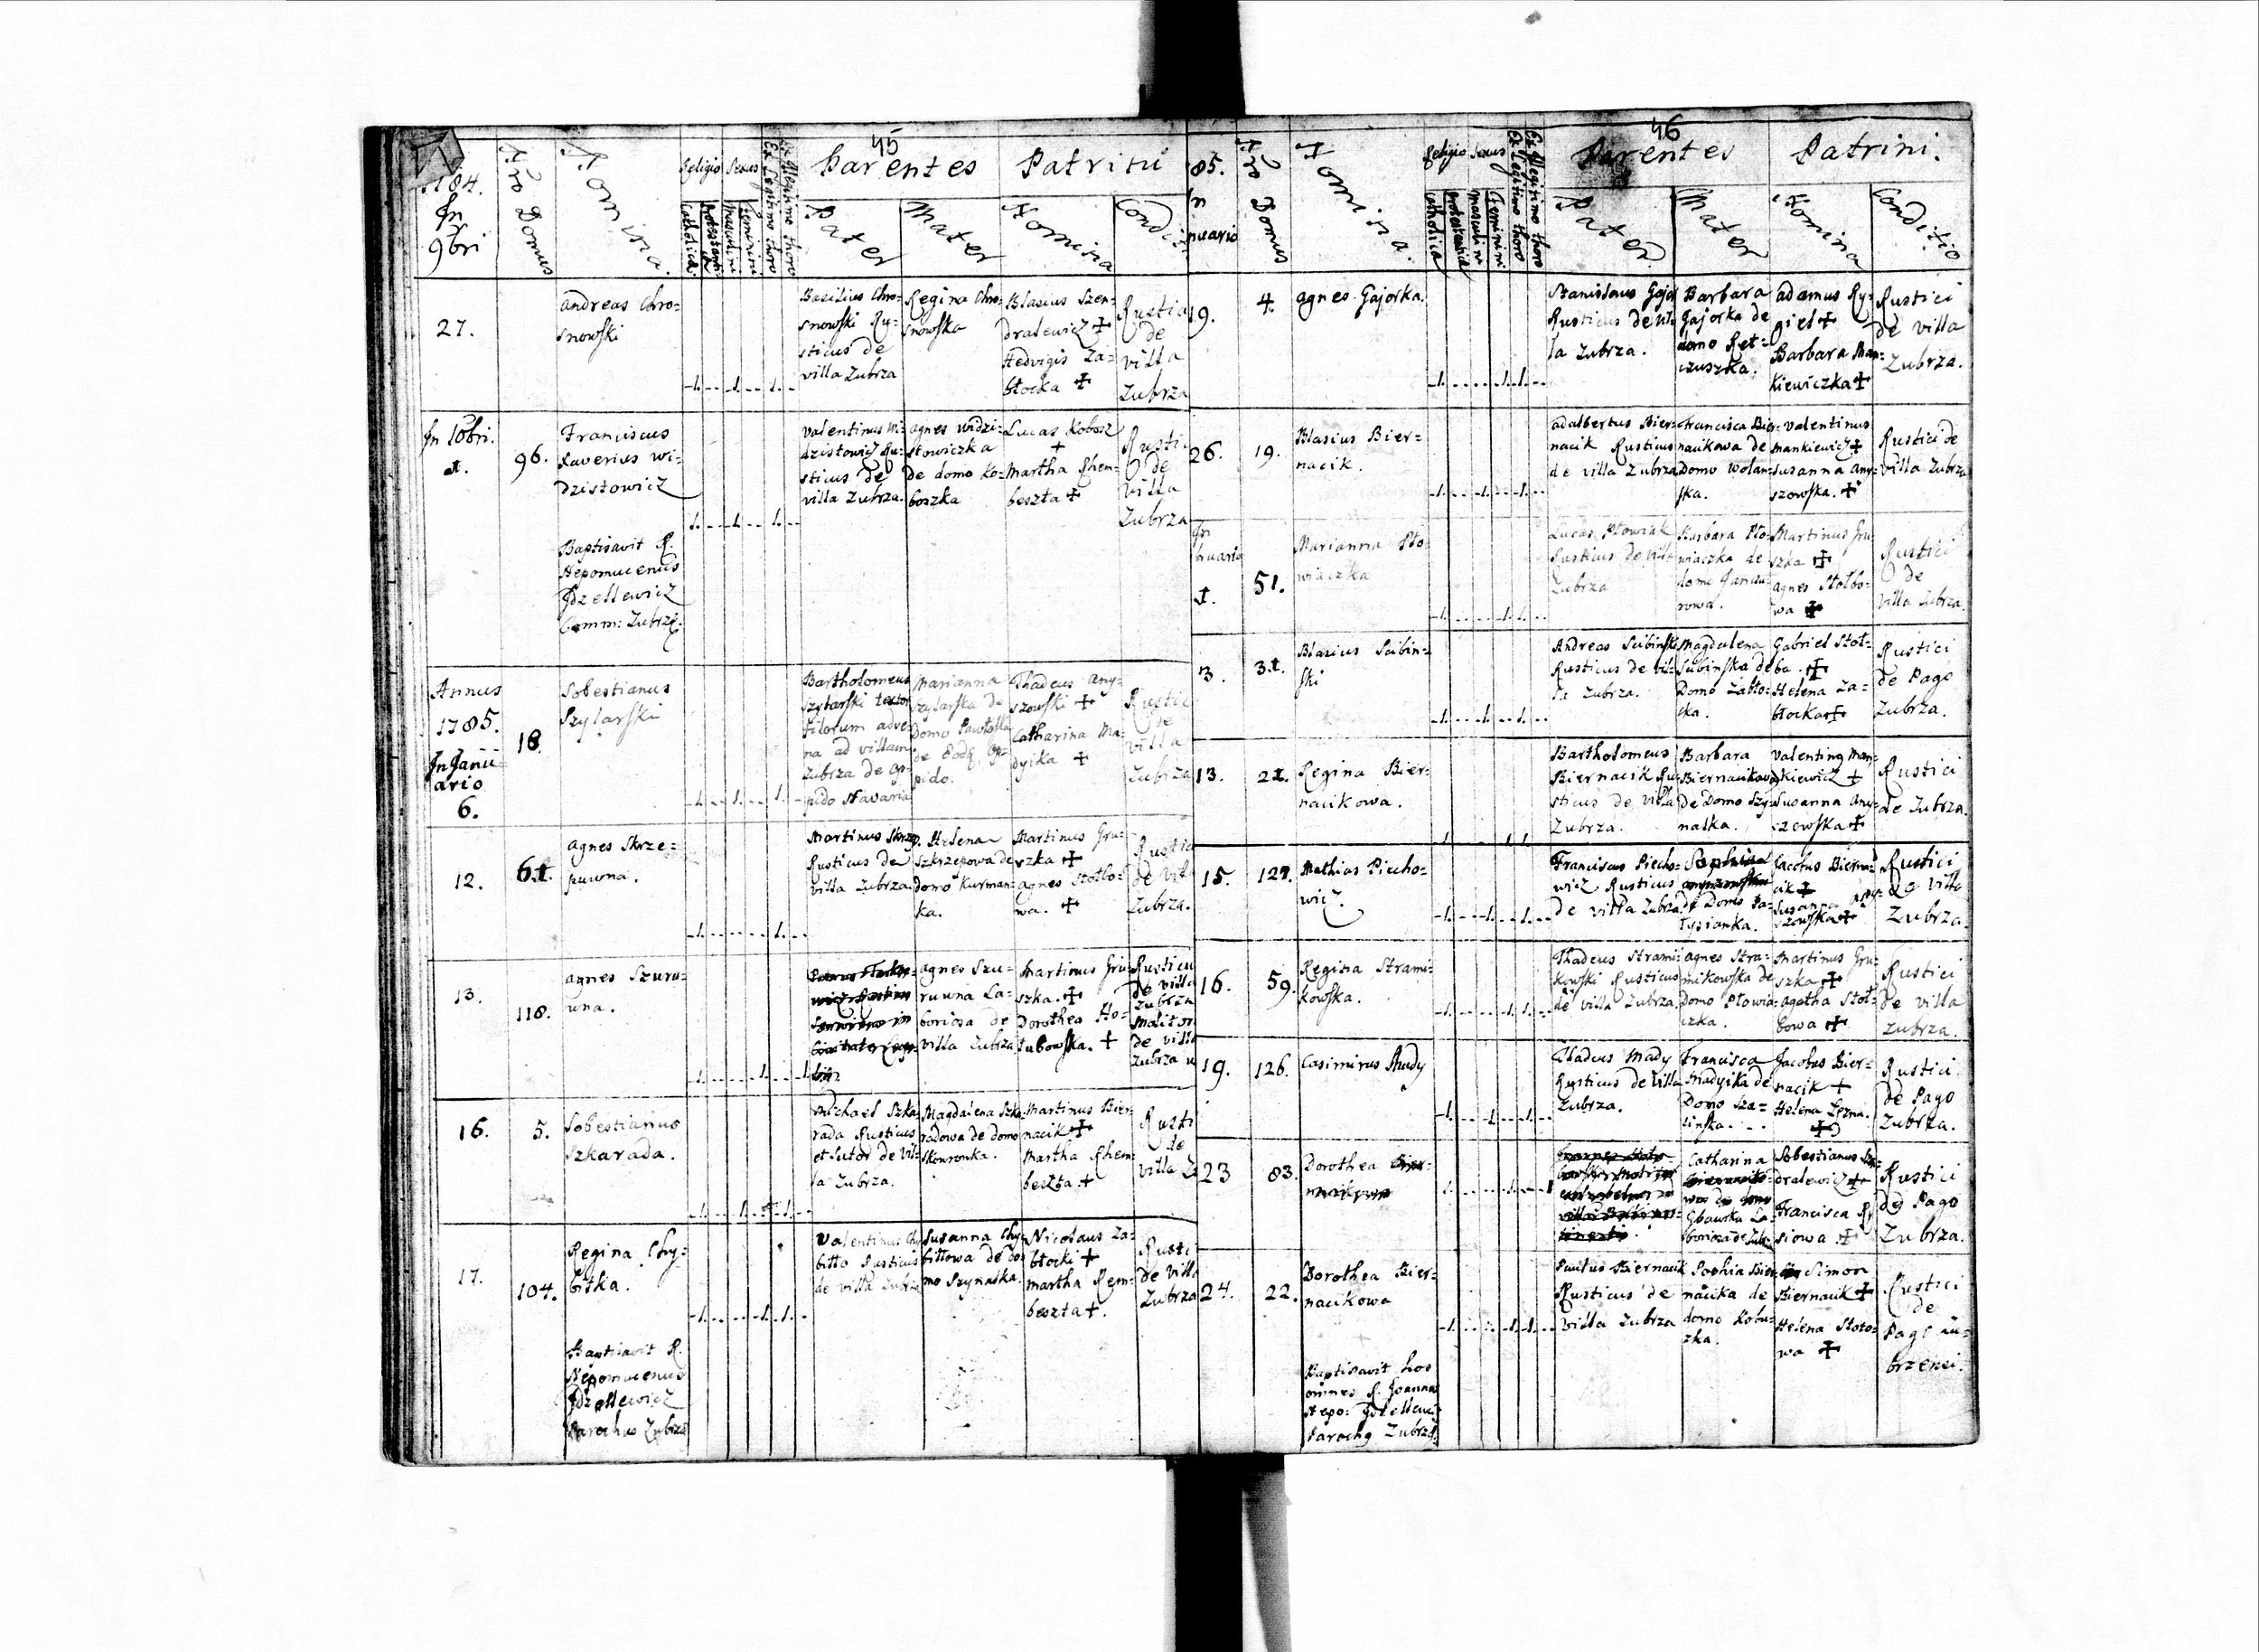 45
1784.
In
9bri
Nro Domus
Nomina.
Religio
Sexus
Catholica
Masculini
Feminini
Ex Legitimo thoro
Ex Illegitimo thoro
Parentes
Pater
Mater
Patrini
Nomina
Condit
27.
Andreas Chro=
snowski
.1. .1. .1.
Basilius Chro=
snowski Ru=
sticus de
villa Zubrza
Regina Chro=
snowska
Blasius Szen=
dralewicz +
Hedvigis Za=
błocka +
Rustici
de
villa
Zubrza
In 10bri.
1.
96.
Franciscus
Xaverius Wi=
dzistowicz
Baptisavit R.
Nepomucenus
Idzellewicz
Comm: Zubrz.
1. .1. 1.
Valentinus Wi=
dzistowicz Ru=
sticus de
villa Zubrza.
Agnes Widzi=
stowiczka
de domo Ko=
boszka
Lucas Kobosz
+
Martha Rhem=
beszta +
Rusti
de
villa
Zubrza
Annus
1785.
In Janu
ario
6.
18.
Sobestianus
Szylarski
1. .1. 1.
Bartholomeus
Szylarski textor
filorum adve
na ad villam
Zubrza de op=
pido Navaria
Marianna
Szylarska de
Domo Pawłoska
de Eodq Op=
pido.
Thadeus Any=
szowski +
Catharina Ma=
dyika +
Rustic
de
villa
Zubrza
12.
61.
Agnes Skrze=
puwna.
.1. 1.
Martinus Skrzep
Rusticus de
villa Zubrza
Helena
Szkrzepowa de
domo Kurman=
ka.
Martinus Gru=
szka +
Agnes Stołbo=
wa. +
Rustici
de vill
Zubrza.
13.
118.
Agnes Szuru=
wna.
.1. 1. 1.
Agnes Szu=
ruwna La=
boriosa de
villa Zubrza
Martinus Gru
szka. +
Dorothea Ho=
łubowska. +
Rusticu
de villa
Zubrza
Molitor
de villa
Zubrza
16.
5.
Sobestianus
Szkarada.
.1. .1. 1.
Michael Szka=
rada Rusticus
et Sutor de vil=
la Zubrza.
Magdalena Szka
radowa de domo
Skowronka.
Martinus Bier=
nacik +
Martha Rhem=
beszta. +
Rusti
de
villa Z
17.
104.
Regina Chy=
bitka.
Baptisavit R.
Nepomucenus
Idzellewicz
Parochus Zubrza
.1. 1. 1.
Valentinus Chy
bitto Rusticus
de villa Zubrza
Susanna Chy=
bittowa de do
mo Szynalka.
Nicolaus Za=
błocki +
Martha Rem=
beszta +.
Rusti
de villa
Zubrza
46
85.
n
nuario
Nro Domus
Nomina.
Religio
Sexus
Catholica
Protestantica
Masculini
Feminini
Ex Legitimo thoro
Ex Illegitimo thoro
Parentes
Pater
Mater
Patrini.
Nomina
Conditio
19.
4.
Agnes Gajorka.
.1. .1. .1.
Stanislaus Gajor
Rusticus de vil
la Zubrza.
Barbara
Gajorka de
domo Ret=
czuszka.
Adamus Ry=
giel +
Barbara Man=
kiewiczka +
Rustici
de villa
Zubrza.
26.
19.
Blasius Bier=
nacik.
.1. .1. .1.
Adalbertus Bier=
nacik Rusticus
de villa Zubrza.
Francisca Bier=
nacikowa de
Domo Wolan=
ska.
Valentinus
Mankiewicz +
Susanna Any=
szowska. +
Rustici de
villa Zubrza
In
bruario
1.
51.
Marianna Pło=
wiaczka
.1. .1. 1.
Lucas Płowiak
Rusticus de vill
Zubrza
Barbara Pło=
wiaczka de
domo
rowa.
Martinus Gru
szka +
Agnes Stołbo=
wa +
Rustici
de
villa Zubrza.
3.
31.
Blasius Scibin=
ski
.1. .1. .1.
Andreas Scibinski
Rusticus de vil=
la Zubrza.
Magdalena
Scibinska de
Domo Zabło=
cka.
Gabriel Stoł=
ba. +
Helena Za=
błocka +
Rustici
de Pago
Zubrza.
13.
21.
Regina Bier=
nacikowa.
1. .1. 1.
Bartholomeus
Biernacik Ru
sticus de villa
Zubrza.
Barbara
Biernacikowa
de Domo Szy=
nalka.
Valentinq Man=
kiewicz +
Susanna Any=
szewska +
Rustici
de Zubrza.
15.
127.
Mathias Piecho=
wicz.
.1. .1. .1.
Franciscus Piecho=
wicz Rusticus
de villa Zubrza.
de Domo Pa=
tysianka.
Jacobus Bierna=
cik +
Susanna Any=
szowska +
Rustici
de villa
Zubrza.
16.
59.
Regina Strami=
kowska.
.1. .1. 1.
Thadeus Strami=
kowski Rusticus
de villa Zubrza.
Agnes Stra=
mikowska de
Domo Płowia=
czka.
Martinus Gru=
szka +
Agatha Stoł=
bowa +
Rustici
de villa
Zubrza.
19.
126.
Casimirus Mudy
.1. .1. .1.
Thadeus Mady
Rusticus de villa
Zubrza.
Francisca
Madyika de
Domo Sza=
linska.
Jacobus Bier=
nacik +
Helena Lerna.
+
Rustici
de Pago
Zubrza.
23
83.
Dorothea
1. .1. 1
Catharina
Gbawska La=
boriosa de Zubr.
Sobestianus Sz=
dralewicz +
Francisca Ry
siowa +
Rustici
de Pago
Zubrza.
24.
22.
Dorothea Bier=
nacikowa
Baptisavit hos
omnes R. Joannes
Nepo: Idzellewic
Parochq Zubrzq.
.1. .1. .1.
Paulus Biernacik
Rusticus de
villa Zubrza
Sophia Bier
nacika de
domo Kobu=
szka.
Simon
Biernacik +
Helena Stoło=
wa +
Rustici
de
Pago Zu=
brzensi.